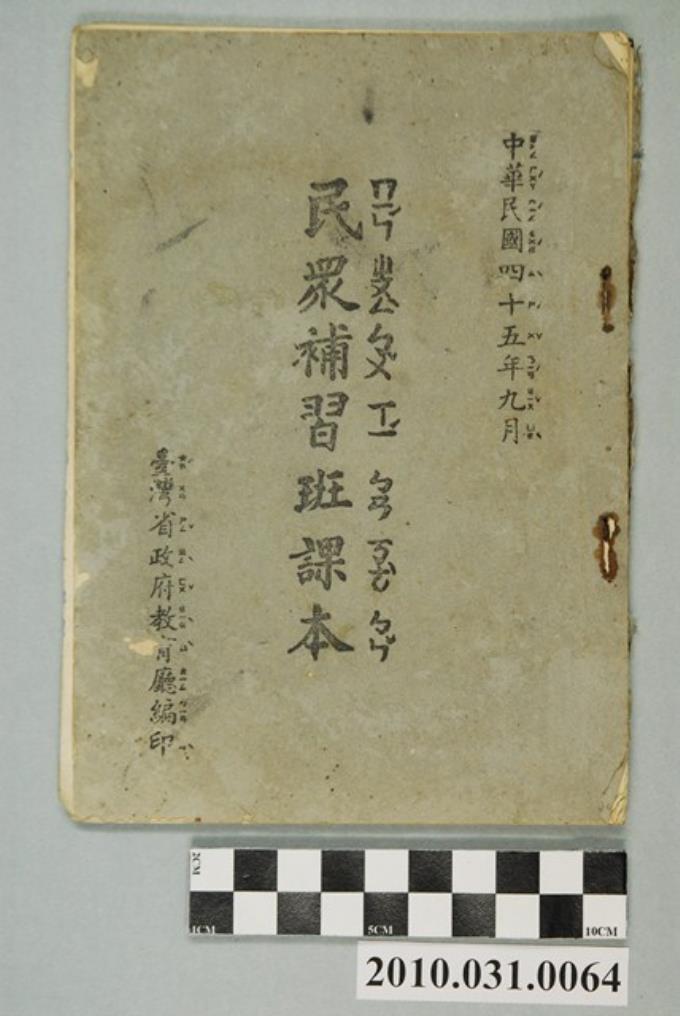 中華民國四十五年九月
民眾補習班課本
ㄇㄧㄣˊ ㄓㄨㄥˋ ㄅㄨˇ ㄒㄧˊ ㄅㄢ ㄎㄜˋ ㄅㄣˇ
臺灣省政府教育廳編印
2CM
1CM 5CM 10CM
2010.031.0064